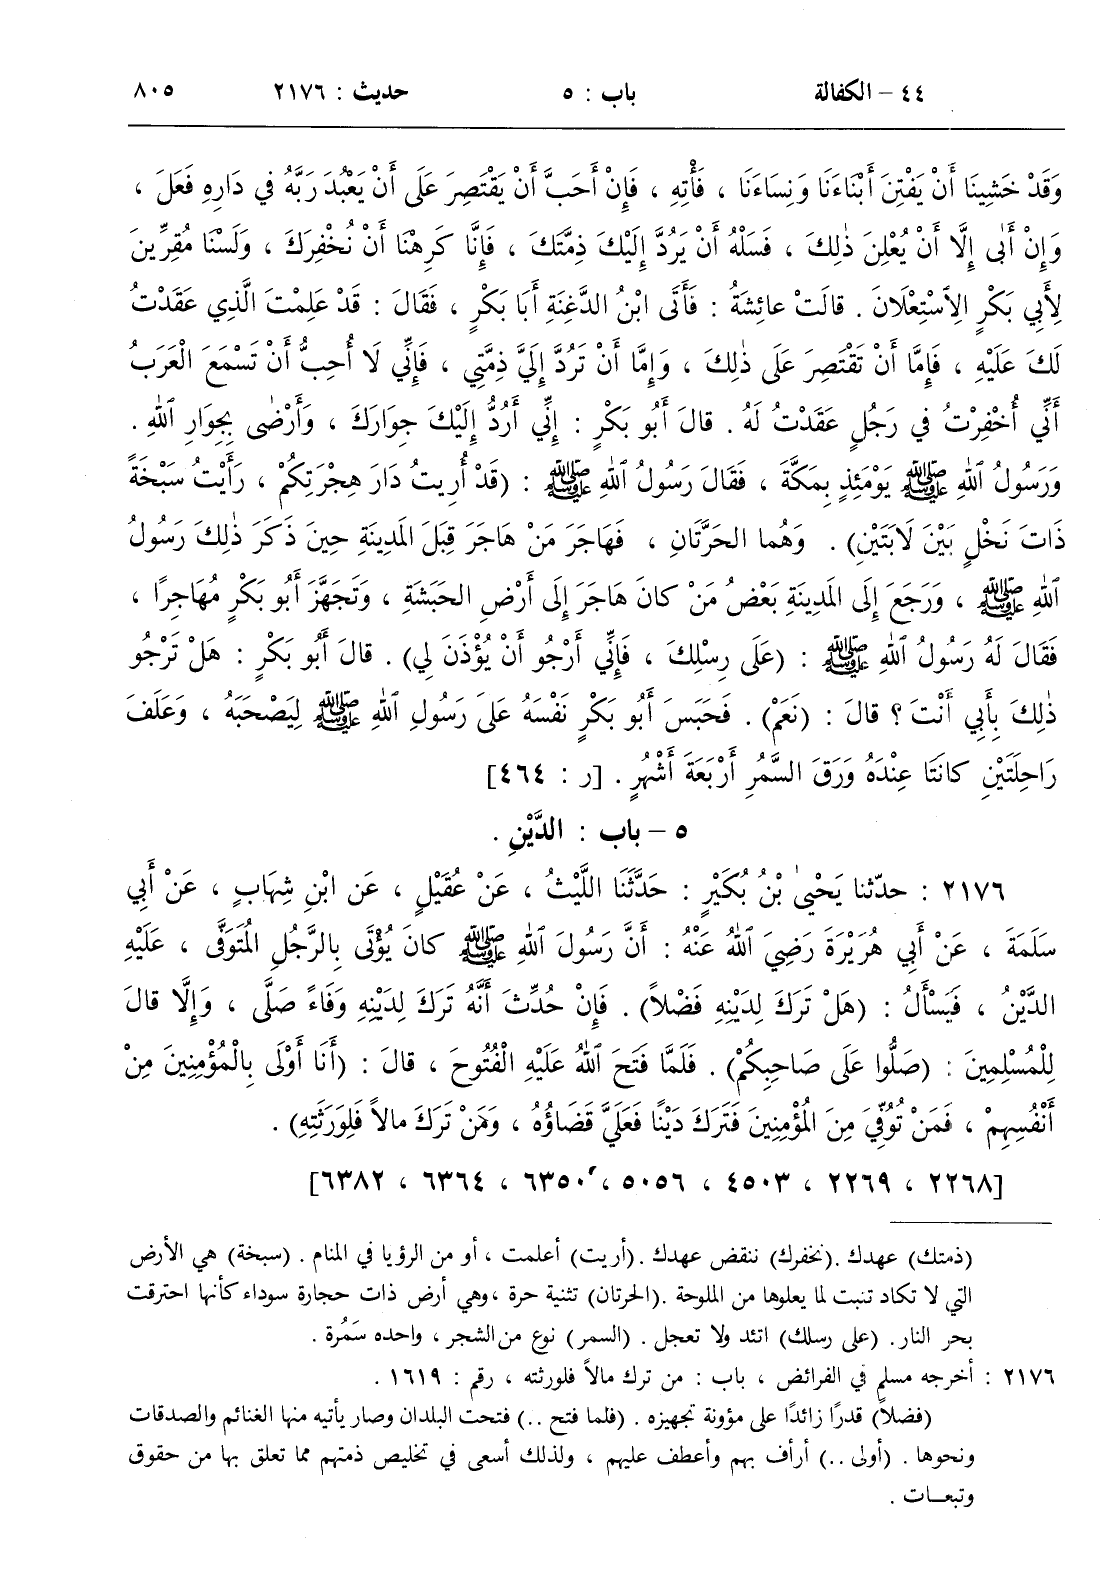 ٤٤ – الكفالة باب : ٥ حديث : ٢١٧٦ ٨٠٥
وَقَدْ خَشِينَا أَنْ يَفْتِنَ أَبْنَاءَنَا وَنِسَاءَنَا ، فَأْتِهِ ، فَإِنْ أَحَبَّ أَنْ يَقْتَصِرَ عَلَى أَنْ يَعْبُدَ رَبَّهُ في دَارِهِ فَعَلَ ،
وَإِنْ أَبٰى إِلَّا أَنْ يُعْلِنَ ذٰلِكَ ، فَسَلْهُ أَنْ يَرُدَّ إِلَيْكَ ذِمَّتَكَ ، فَإِنَّا كَرِهْنَا أَنْ نُخْفِرَكَ ، وَلَسْنَا مُقِرِّينَ
لِأَبِي بَكْرٍ الِٱسْتِعْلَانَ . قالَتْ عائِشَةُ : فَأَتَى ابْنُ الدَّغِنَةِ أَبَا بَكْرٍ ، فَقَالَ : قَدْ عَلِمْتَ الَّذِي عَقَدْتُ
لَكَ عَلَيْهِ ، فَإِمَّا أَنْ تَقْتَصِرَ عَلَى ذٰلِكَ ، وَإِمَّا أَنْ تَرُدَّ إِلَيَّ ذِمَّتِي ، فَإِنِّي لَا أُحِبُّ أَنْ تَسْمَعَ الْعَرَبُ
أَنِّي أُخْفِرْتُ في رَجُلٍ عَقَدْتُ لَهُ . قالَ أَبُو بَكْرٍ : إِنِّي أَرُدُّ إِلَيْكَ جِوَارَكَ ، وَأَرْضٰى بِجِوَارِ ٱللّٰهِ .
وَرَسُولُ ٱللّٰهِ ﷺ يَوْمَئِذٍ بِمَكَّةَ ، فَقَالَ رَسُولُ ٱللّٰهِ ﷺ : (قَدْ أُرِيتُ دَارَ هِجْرَتِكُمْ ، رَأَيْتُ سَبْخَةً
ذَاتَ نَخْلٍ بَيْنَ لَابَتَيْنِ) . وَهُما الحَرَّتَانِ ، فَهَاجَرَ مَنْ هَاجَرَ قِبَلَ المَدِينَةِ حِينَ ذَكَرَ ذٰلِكَ رَسُولُ
ٱللّٰهِ ﷺ ، وَرَجَعَ إِلَى المَدِينَةِ بَعْضُ مَنْ كانَ هَاجَرَ إِلَى أَرْضِ الحَبَشَةِ ، وَتَجَهَّزَ أَبُو بَكْرٍ مُهَاجِرًا ،
فَقَالَ لَهُ رَسُولُ ٱللّٰهِ ﷺ : (عَلَى رِسْلِكَ ، فَإِنِّي أَرْجُو أَنْ يُؤْذَنَ لِي) . قالَ أَبُو بَكْرٍ : هَلْ تَرْجُو
ذٰلِكَ بِأَبِي أَنْتَ ؟ قالَ : (نَعَمْ) . فَحَبَسَ أَبُو بَكْرٍ نَفْسَهُ عَلَى رَسُولِ ٱللّٰهِ ﷺ لِيَصْحَبَهُ ، وَعَلَفَ
رَاحِلَتَيْنِ كانَتَا عِنْدَهُ وَرَقَ السَّمُرِ أَرْبَعَةَ أَشْهُرٍ . [ر : ٤٦٤]
٥ – باب : الدَّيْنِ .
٢١٧٦ : حدّثنا يَحْيىٰ بْنُ بُكَيْرٍ : حَدَّثَنَا اللَّيْثُ ، عَنْ عُقَيْلٍ ، عَنِ ابْنِ شِهَابٍ ، عَنْ أَبِي
سَلَمَةَ ، عَنْ أَبِي هُرَيْرَةَ رَضِيَ ٱللّٰهُ عَنْهُ : أَنَّ رَسُولَ ٱللّٰهِ ﷺ كانَ يُؤْتَى بِالرَّجُلِ المُتَوَفَّى ، عَلَيْهِ
الدَّيْنُ ، فَيَسْأَلُ : (هَلْ تَرَكَ لِدَيْنِهِ فَضْلاً) . فَإِنْ حُدِّثَ أَنَّهُ تَرَكَ لِدَيْنِهِ وَفَاءً صَلَّى ، وَإِلَّا قالَ
لِلْمُسْلِمِينَ : (صَلُّوا عَلَى صَاحِبِكُمْ) . فَلَمَّا فَتَحَ ٱللّٰهُ عَلَيْهِ الْفُتُوحَ ، قالَ : (أَنَا أَوْلَى بِالْمُؤْمِنِينَ مِنْ
أَنْفُسِهِمْ ، فَمَنْ تُوُفِّيَ مِنَ المُؤْمِنِينَ فَتَرَكَ دَيْنًا فَعَلَيَّ قَضَاؤُهُ ، وَمَنْ تَرَكَ مالاً فَلِوَرَثَتِهِ) .
[٢٢٦٨ ، ٢٢٦٩ ، ٤٥٠٣ ، ٥٠٥٦ ، ٦٣٥٠ ، ٦٣٦٤ ، ٦٣٨٢]
(ذمتك) عهدك . (نخفرك) ننقض عهدك . (أريت) أعلمت ، أو من الرؤيا في المنام . (سبخة) هي الأرض
التي لا تكاد تنبت لما يعلوها من الملوحة . (الحرتان) تثنية حرة ، وهي أرض ذات حجارة سوداء كأنها احترقت
بحر النار . (على رسلك) اتئد ولا تعجل . (السمر) نوع من الشجر ، واحده سَمُرة .
٢١٧٦ : أخرجه مسلم في الفرائض ، باب : من ترك مالاً فلورثته ، رقم : ١٦١٩ .
(فضلاً) قدرًا زائدًا على مؤونة تجهيزه . (فلما فتح ..) فتحت البلدان وصار يأتيه منها الغنائم والصدقات
ونحوها . (أولى ..) أرأف بهم وأعطف عليهم ، ولذلك أسعى في تخليص ذمتهم مما تعلق بها من حقوق
وتبعـات .